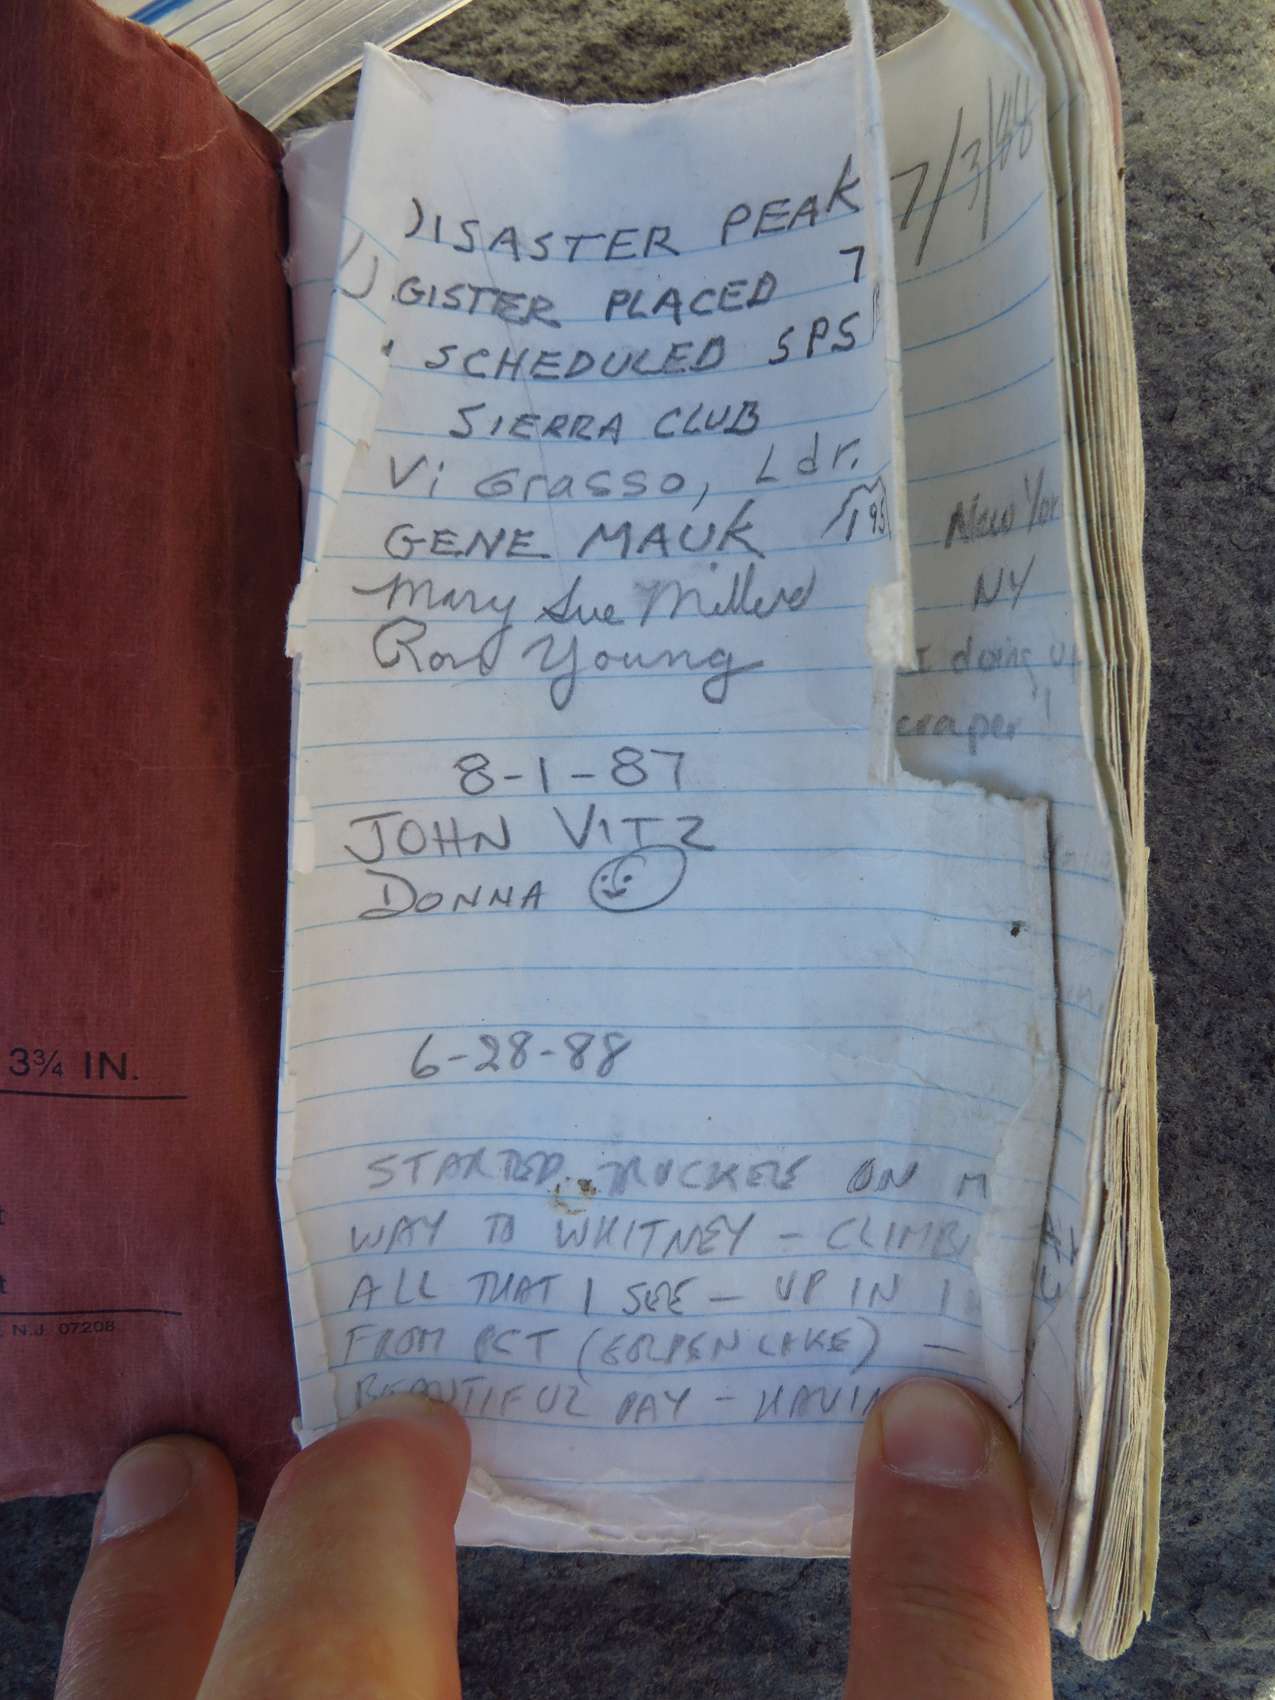 DISASTER PEAK
GISTER PLACED 7
SCHEDULED SPS
SIERRA CLUB
Vi Grasso, Ldr.
GENE MAUK
Mary Sue Miller
Ron Young
8-1-87
JOHN VITZ
DONNA
6-28-88
STARTED TRUCKEE ON M
WAY TO WHITNEY - CLIMBI
ALL THAT I SEE - UP IN 1
FROM PCT (GOLDEN LAKE) -
BEAUTIFUL DAY - HAVIN
7/3/88
New Yor
NY
I doing up
craper!
3¾ IN.
N.J. 07208